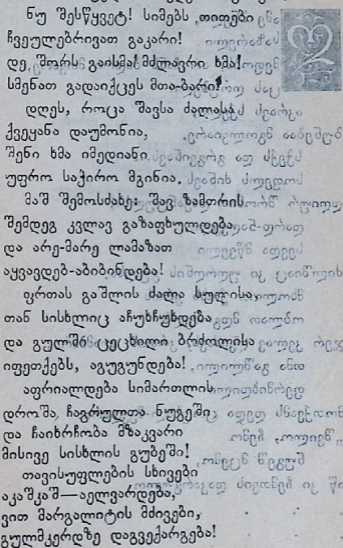 ნუ შესწყვეტ! სიმებს თითები
ჩვეულებრივათ გაკარი!
დე, შორს გაისმა მძლავრი ხმა!
სმენათ გადაიქცეს მთა-ბარი!
დღეს, როცა შავსა ძალასა
ქვეყანა დაუმონია,
შენი ხმა იმედიანი
უფრო საჭირო მგონია.
მაშ შემოსძახე: შავ ზამთრის
შემდეგ კვლავ გაზაფხულდება
და არე-მარე ლამაზათ
აყვავდებ-აბიბინდება!
ფრთას გაშლის ძალა სულისა,
თან სისხლიც აჩუხჩუხდება
და გულში ცეცხლი ბრძოლისა
იფეთქებს, აგუგუნდება!
აფრიალდება სიმართლის
დროშა, ჩაგრულთა ნუგეში,
და ჩაიხრჩობა მზაკვარი
მისივე სისხლის გუბეში!
თავისუფლების სხივები
აკაშკაშ—აელვარდება,
ვით მარგალიტის მძივები,
გულმკერდზე დაგვეკარგება!